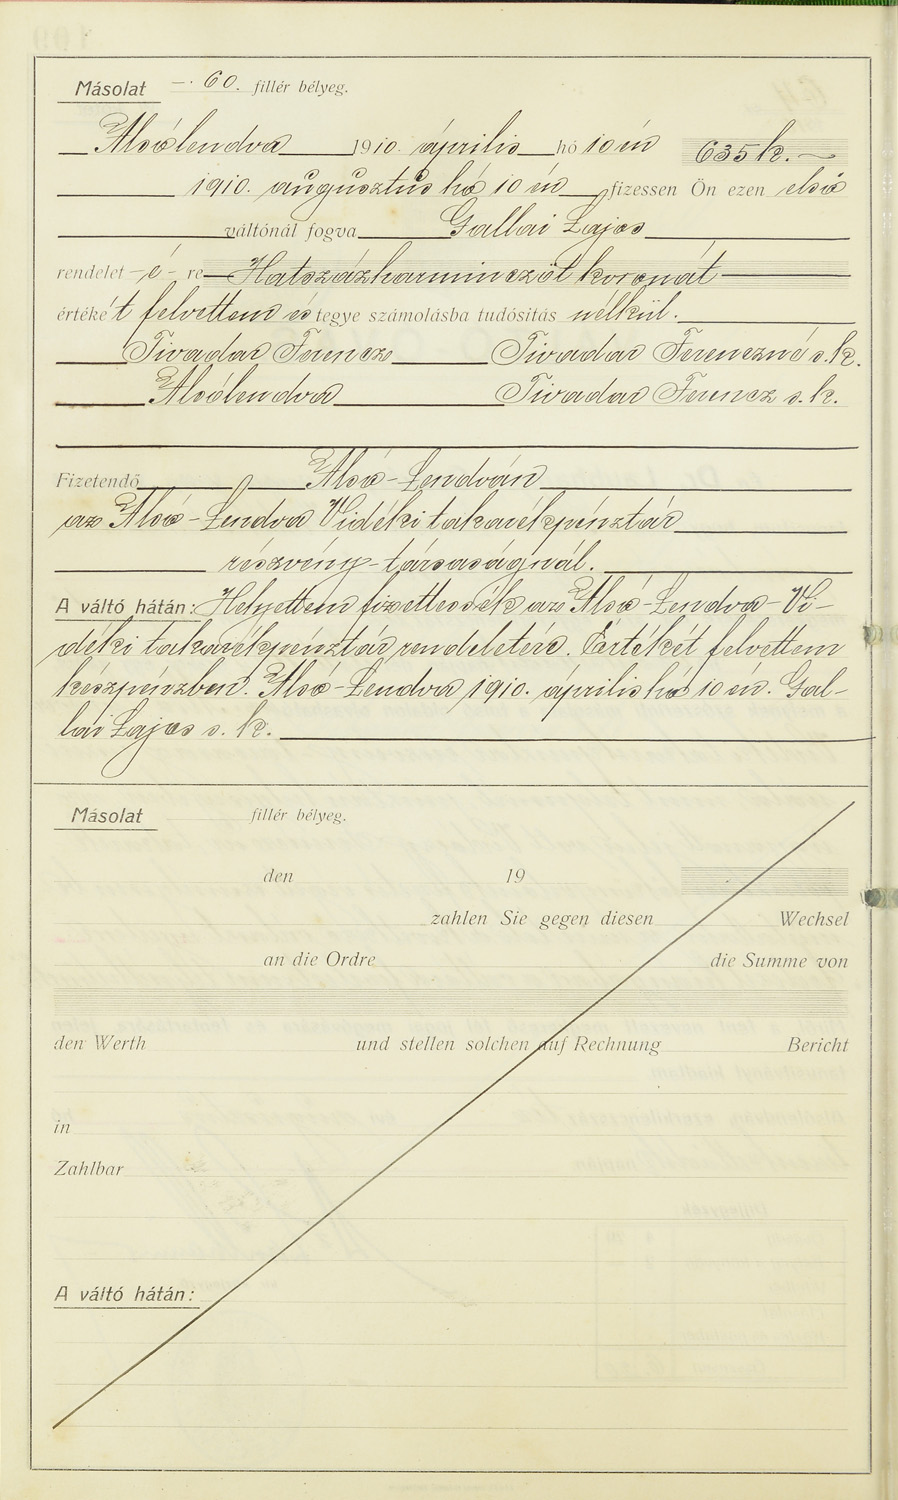 Másolat —. 60. fillér bélyeg.
Alsólendva 1910. április hó 10 én 635 k.
1910. augusztus hó 10 én fizessen Ön ezen első
váltónál fogva Gallai Lajos
rendelet -é- re Hatszázharminczöt koronát
értéké't felvettem és tegye számolásba tudósítás nélkül.
Tivadar Ferencz Tivadar Ferenczné s. k.
Alsólendva Tivadar Ferencz s. k.
Fizetendő Alsó-Lendván
az Alsó-Lendva Vidéki takarékpénztár
részvény-társaságnál.
A váltó hátán: Helyettem fizettessék az Alsó-Lendva-Vi-
déki takarékpénztár rendeletére. Értékét felvettem
készpénzben. Alsó-Lendva 1910. április hó 10 én. Gal-
lai Lajos s. k.
Másolat fillér bélyeg.
den 19
zahlen Sie gegen diesen Wechsel
an die Ordre die Summe von
den Werth und stellen solchen auf Rechnung Bericht
in
Zahlbar
A váltó hátán: